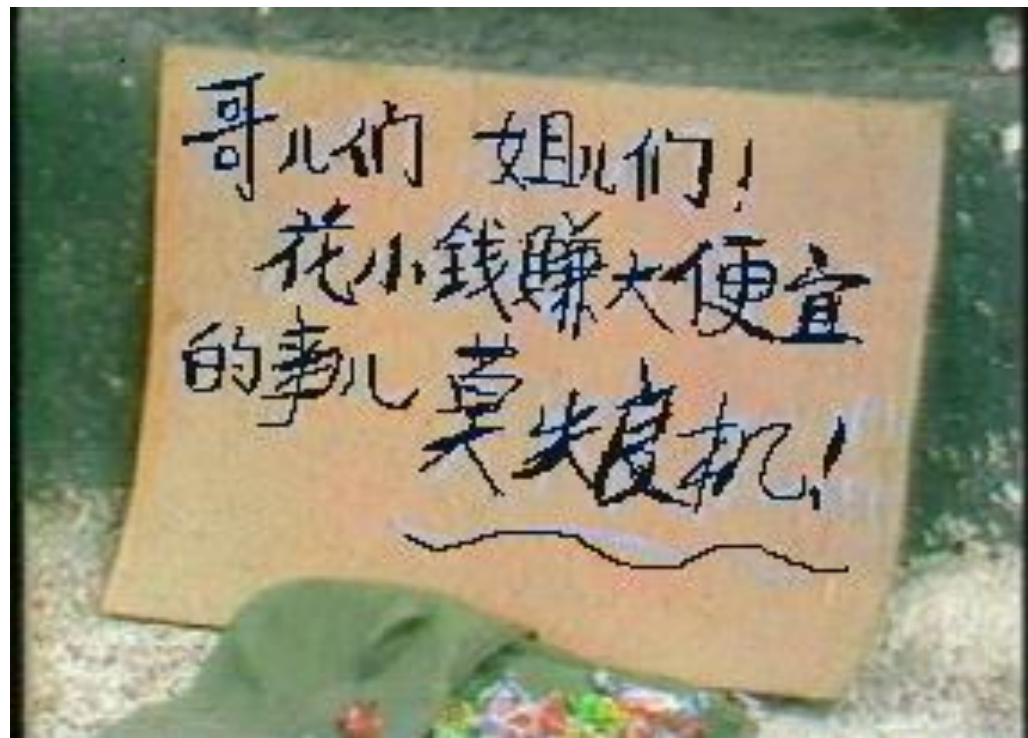 哥儿们 姐儿们！
花小钱赚大便宜
的事儿 莫失良机！